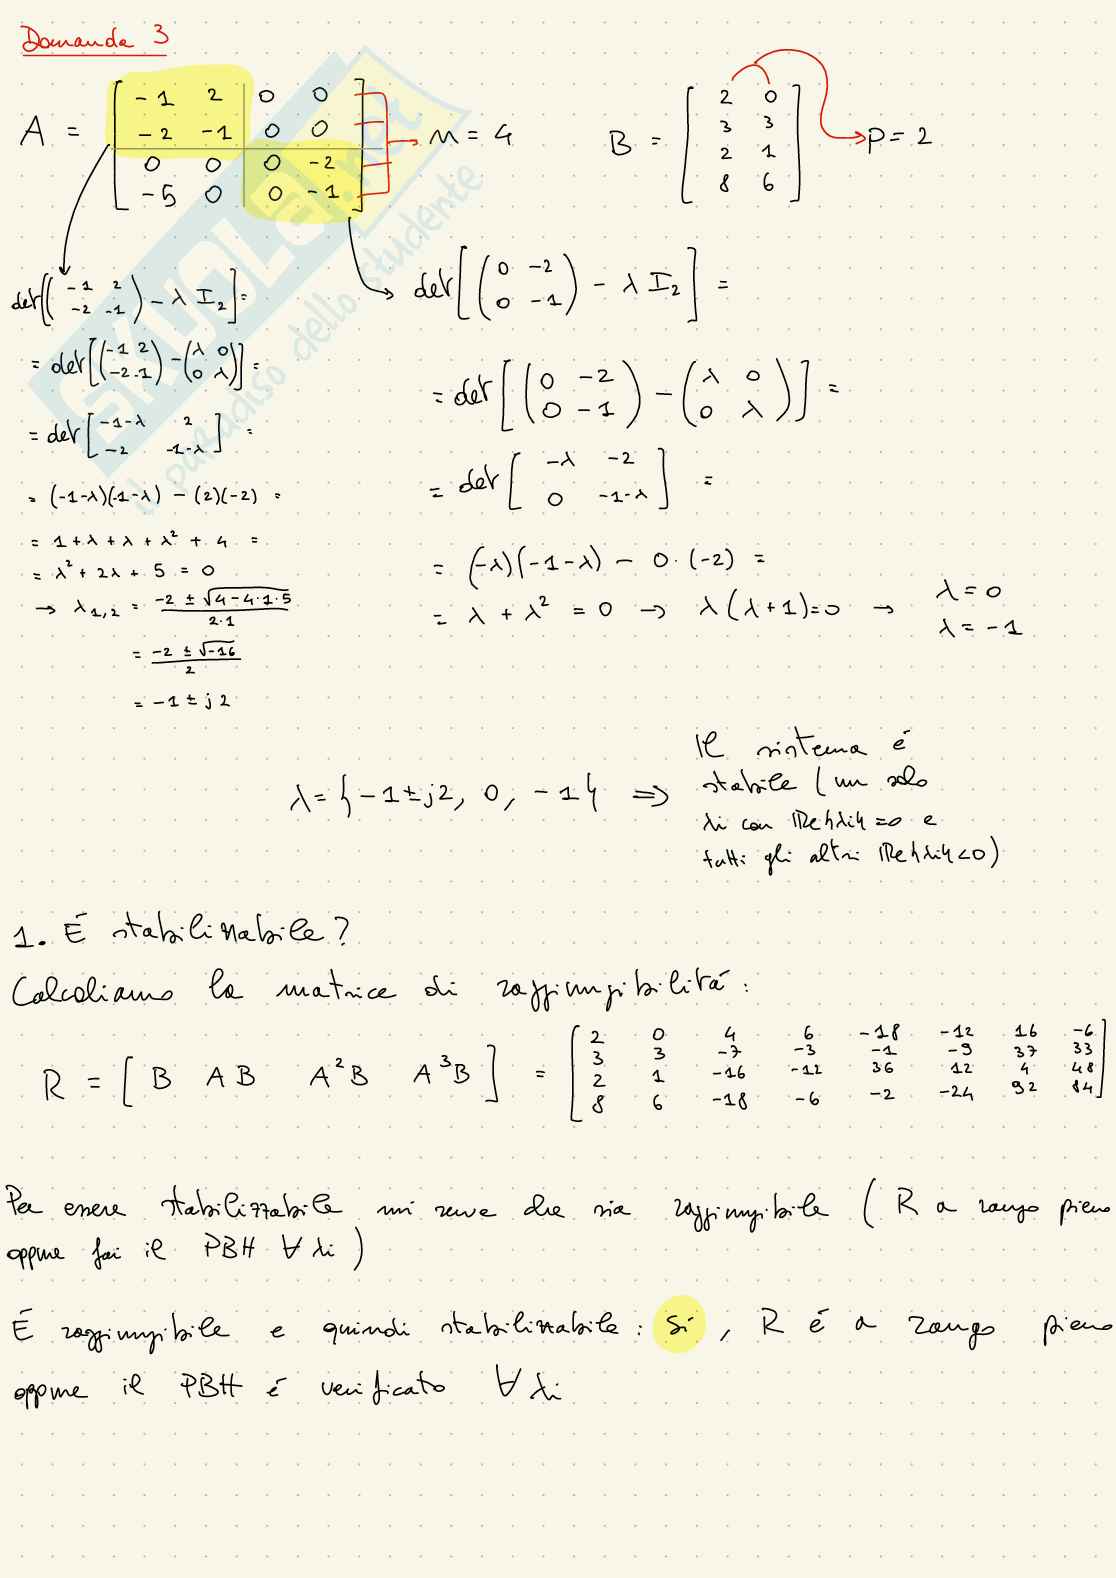 Domanda 3
A = [ -1 2 0 0 n = 4 B = [ 2 0 p = 2
-2 -1 0 0 3 3
0 0 0 -2 2 1
-5 0 0 -1 ] 8 6 ]
det[( -1 2
-2 -1 ) - λ I₂] =
= det[( -1 2
-2 -1 ) - ( λ 0
0 λ )] =
= det[ -1-λ 2
-2 -1-λ ] =
= (-1-λ)(-1-λ) - (2)(-2) =
= 1 + λ + λ + λ² + 4 =
= λ² + 2λ + 5 = 0
→ λ₁,₂ = -2 ± √4-4·1·5
2·1
= -2 ± √-16
2
= -1 ± j2
det[( 0 -2
0 -1 ) - λ I₂] =
= det[( 0 -2
0 -1 ) - ( λ 0
0 λ )] =
= det[ -λ -2
0 -1-λ ] =
= (-λ)(-1-λ) - 0·(-2) =
= λ + λ² = 0 → λ(λ+1)=0 → λ = 0
λ = -1
λ = { -1 ± j2, 0, -1 } ⇒ Il sistema é
stabile (un solo
λi con Re{λi}=0 e
tutti gli altri Re{λi}<0)
1. É stabilizzabile?
Calcoliamo la matrice di raggiungibilità:
R = [ B AB A²B A³B ] = [ 2 0 4 6 -18 -12 16 -6
3 3 -7 -3 -1 -9 37 33
2 1 -16 -12 36 12 4 48
8 6 -18 -6 -2 -24 92 84 ]
Per essere stabilizzabile mi serve che sia raggiungibile ( R a rango pieno
oppure fai il PBH ∀ λi )
É raggiungibile e quindi stabilizzabile: Sí, R é a rango pieno
oppure il PBH é verificato ∀ λi
SKUOLA.net
il paradiso dello studente